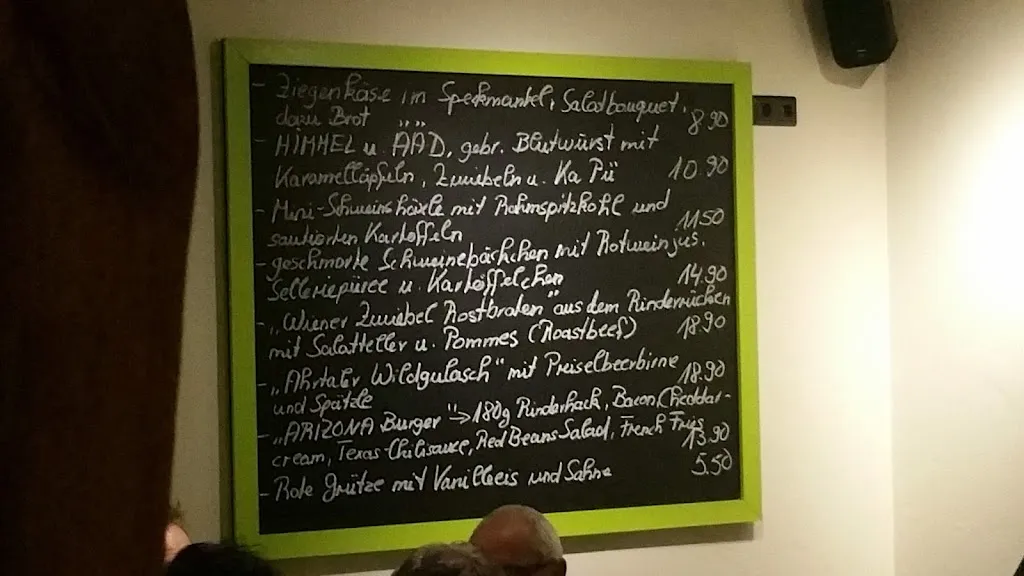 - Ziegenkäse im Speckmantel, Saladbouquet,
dazu Brot 8.90
- HIMMEL u. ÄÄD, gebr. Blutwurst mit
Karamelläpfeln, Zwiebeln u. Ka Pü 10.90
- Mini-Schweinshäxle mit Rahmspitzkohl und
sautierten Kartoffeln 11.50
- geschmorte Schweinebäckchen mit Rotweinjus,
Selleriepüree u. Kartöffelchen 14.90
- „Wiener Zwiebel Rostbraten" aus dem Rinderrücken
mit Salatteller u. Pommes (Roastbeef) 18.90
- „Ahrtaler Wildgulasch" mit Preiselbeerbirne
und Spätzle 18.90
- „ARIZONA Burger" -> 180g Rinderhack, Bacon, Cheddar-
cream, Texas Chilisauce, Red Beans Salad, French Fries 13.90
- Rote Grütze mit Vanilleeis und Sahne 5.50